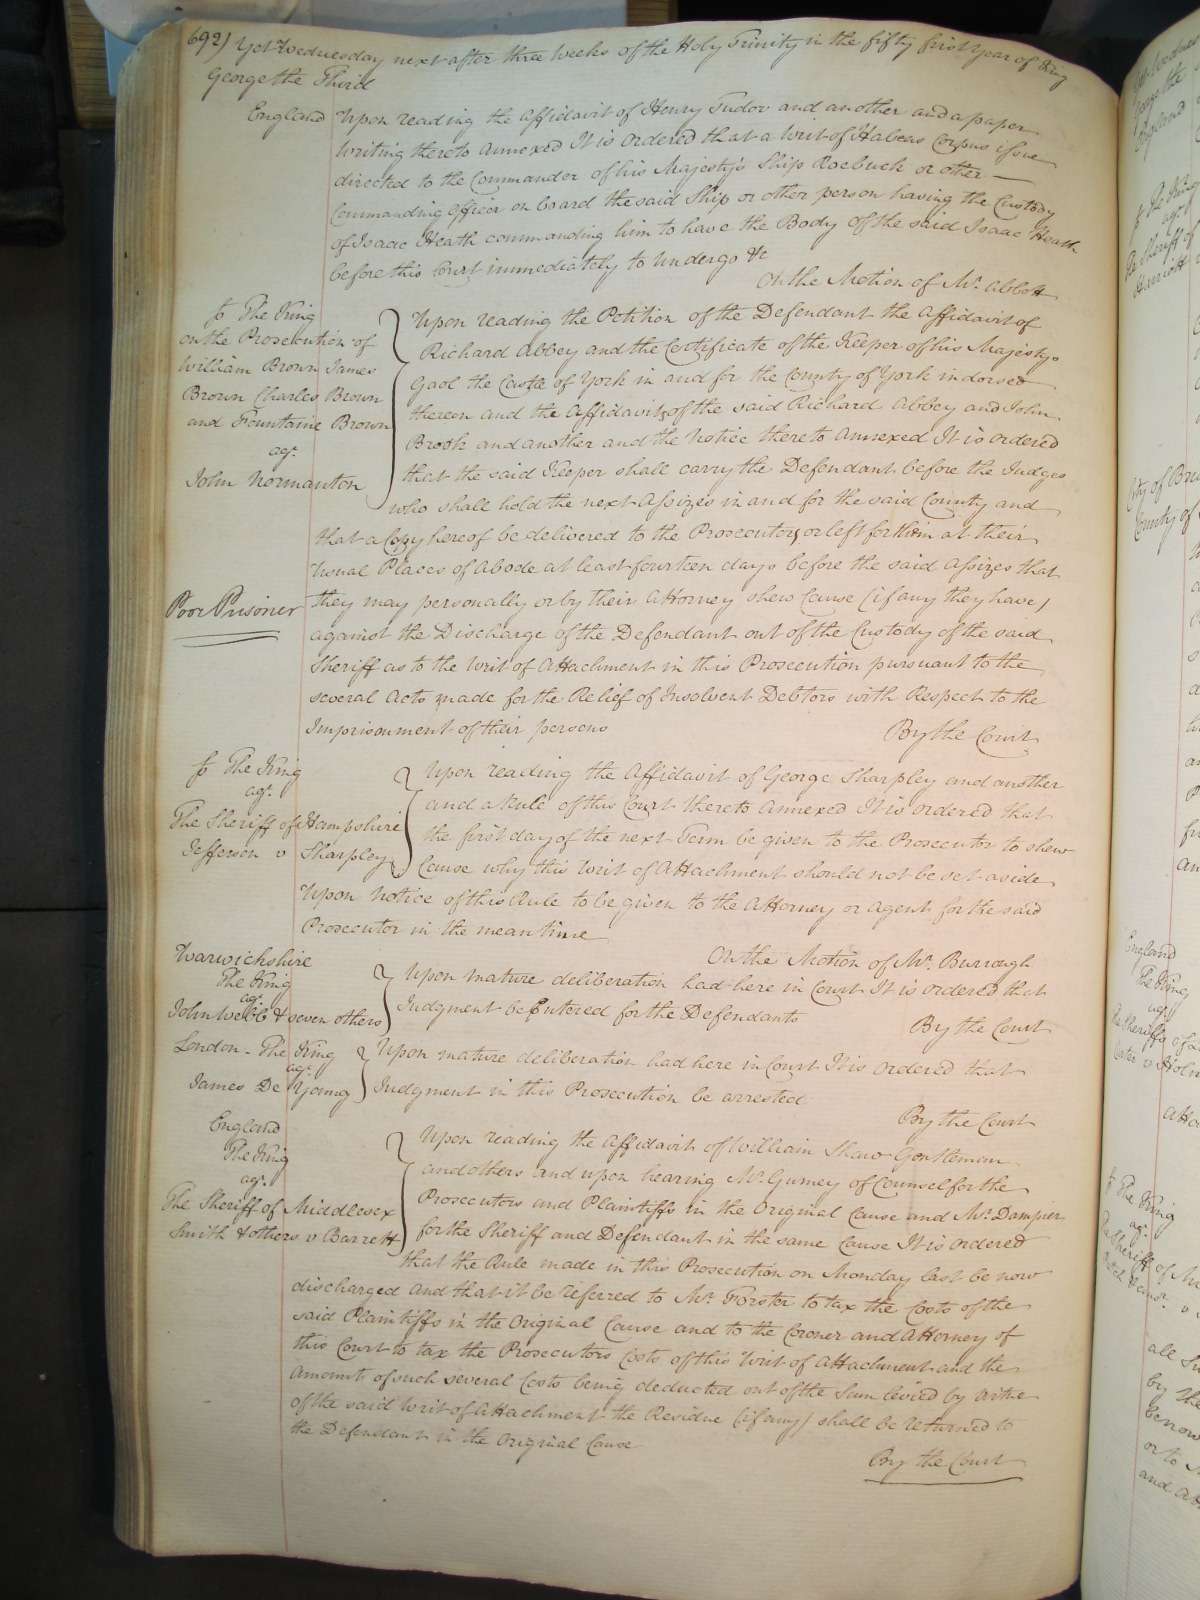 692) Yet Wednesday next after three Weeks of the Holy Trinity in the fifty first Year of King
George the Third
England Upon reading the Affidavit of Henry Tudor and another and a paper
Writing thereto Annexed It is Ordered that a Writ of Habeas Corpus issue
directed to the Commander of his Majesty's Ship Roebuck or other
Commanding Officer on board the said Ship or other person having the Custody
of Isaac Heath commanding him to have the Body of the said Isaac Heath
before this Court immediately to undergo &c
On the Motion of Mr. Abbott
The King
on the Prosecution of
William Brown James
Brown Charles Brown
and Fountaine Brown
agt.
John Normanton
Upon reading the Petition of the Defendant the Affidavit of
Richard Abbey and the Certificate of the Keeper of his Majestys
Gaol the Castle of York in and for the County of York indorsed
thereon and the Affidavits of the said Richard Abbey and John
Brook and another and the Notice thereto Annexed It is ordered
that the said Keeper shall carry the Defendant before the Judges
who shall hold the next Assizes in and for the said County and
that a Copy hereof be delivered to the Prosecutors or left for them at their
Usual Places of Abode at least fourteen days before the said Assizes that
Poor Prisoner
they may personally or by their Attorney shew Cause (if any they have)
against the Discharge of the Defendant out of the Custody of the said
Sheriff as to the Writ of Attachment in this Prosecution pursuant to the
several Acts made for the Relief of Insolvent Debtors with Respect to the
Imprisonment of their persons
By the Court
The King
agt.
The Sheriff of Hampshire
Jefferson v Sharpley
Upon reading the Affidavit of George Sharpley and another
and a Rule of this Court thereto Annexed It is ordered that
the first day of the next Term be given to the Prosecutor to shew
Cause why this Writ of Attachment should not be set aside
Upon Notice of this Rule to be given to the Attorney or Agent for the said
Prosecutor in the mean time
On the Motion of Mr. Burrough
Warwickshire
The King
agt.
John Webb & seven others
Upon mature deliberation had here in Court It is ordered that
Judgment be Entered for the Defendants
By the Court
London - The King
agt.
James De Young
Upon mature deliberation had here in Court It is ordered that
Judgment in this Prosecution be arrested
By the Court
England
The King
agt.
The Sheriff of Middlesex
Smith & others v Barrett
Upon reading the Affidavit of William Shaw Gentleman
and others and upon hearing Mr. Gurney of Counsel for the
Prosecutors and Plaintiffs in the Original Cause and Mr. Dampier
for the Sheriff and Defendant in the same Cause It is ordered
that the Rule made in this Prosecution on Monday last be now
discharged and that it be referred to Mr. Forster to tax the Costs of the
said Plaintiffs in the Original Cause and to the Coroner and Attorney of
this Court to tax the Prosecutors Costs of this Writ of Attachment and the
Amount of such several Costs being deducted out of the Sum levied by virtue
of the said Writ of Attachment the Residue (if any) shall be returned to
the Defendant in the Original Cause
By the Court